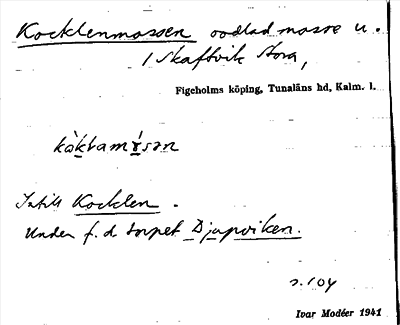 Kocklenmossen odlad mosse u.
/ Skaftvik Stora,
Figeholms köping, Tunaläns hd, Kalm. l.
Intill Kocklen.
Under f. d. torpet Djupviken.
s. 104
Ivar Modéer 1941